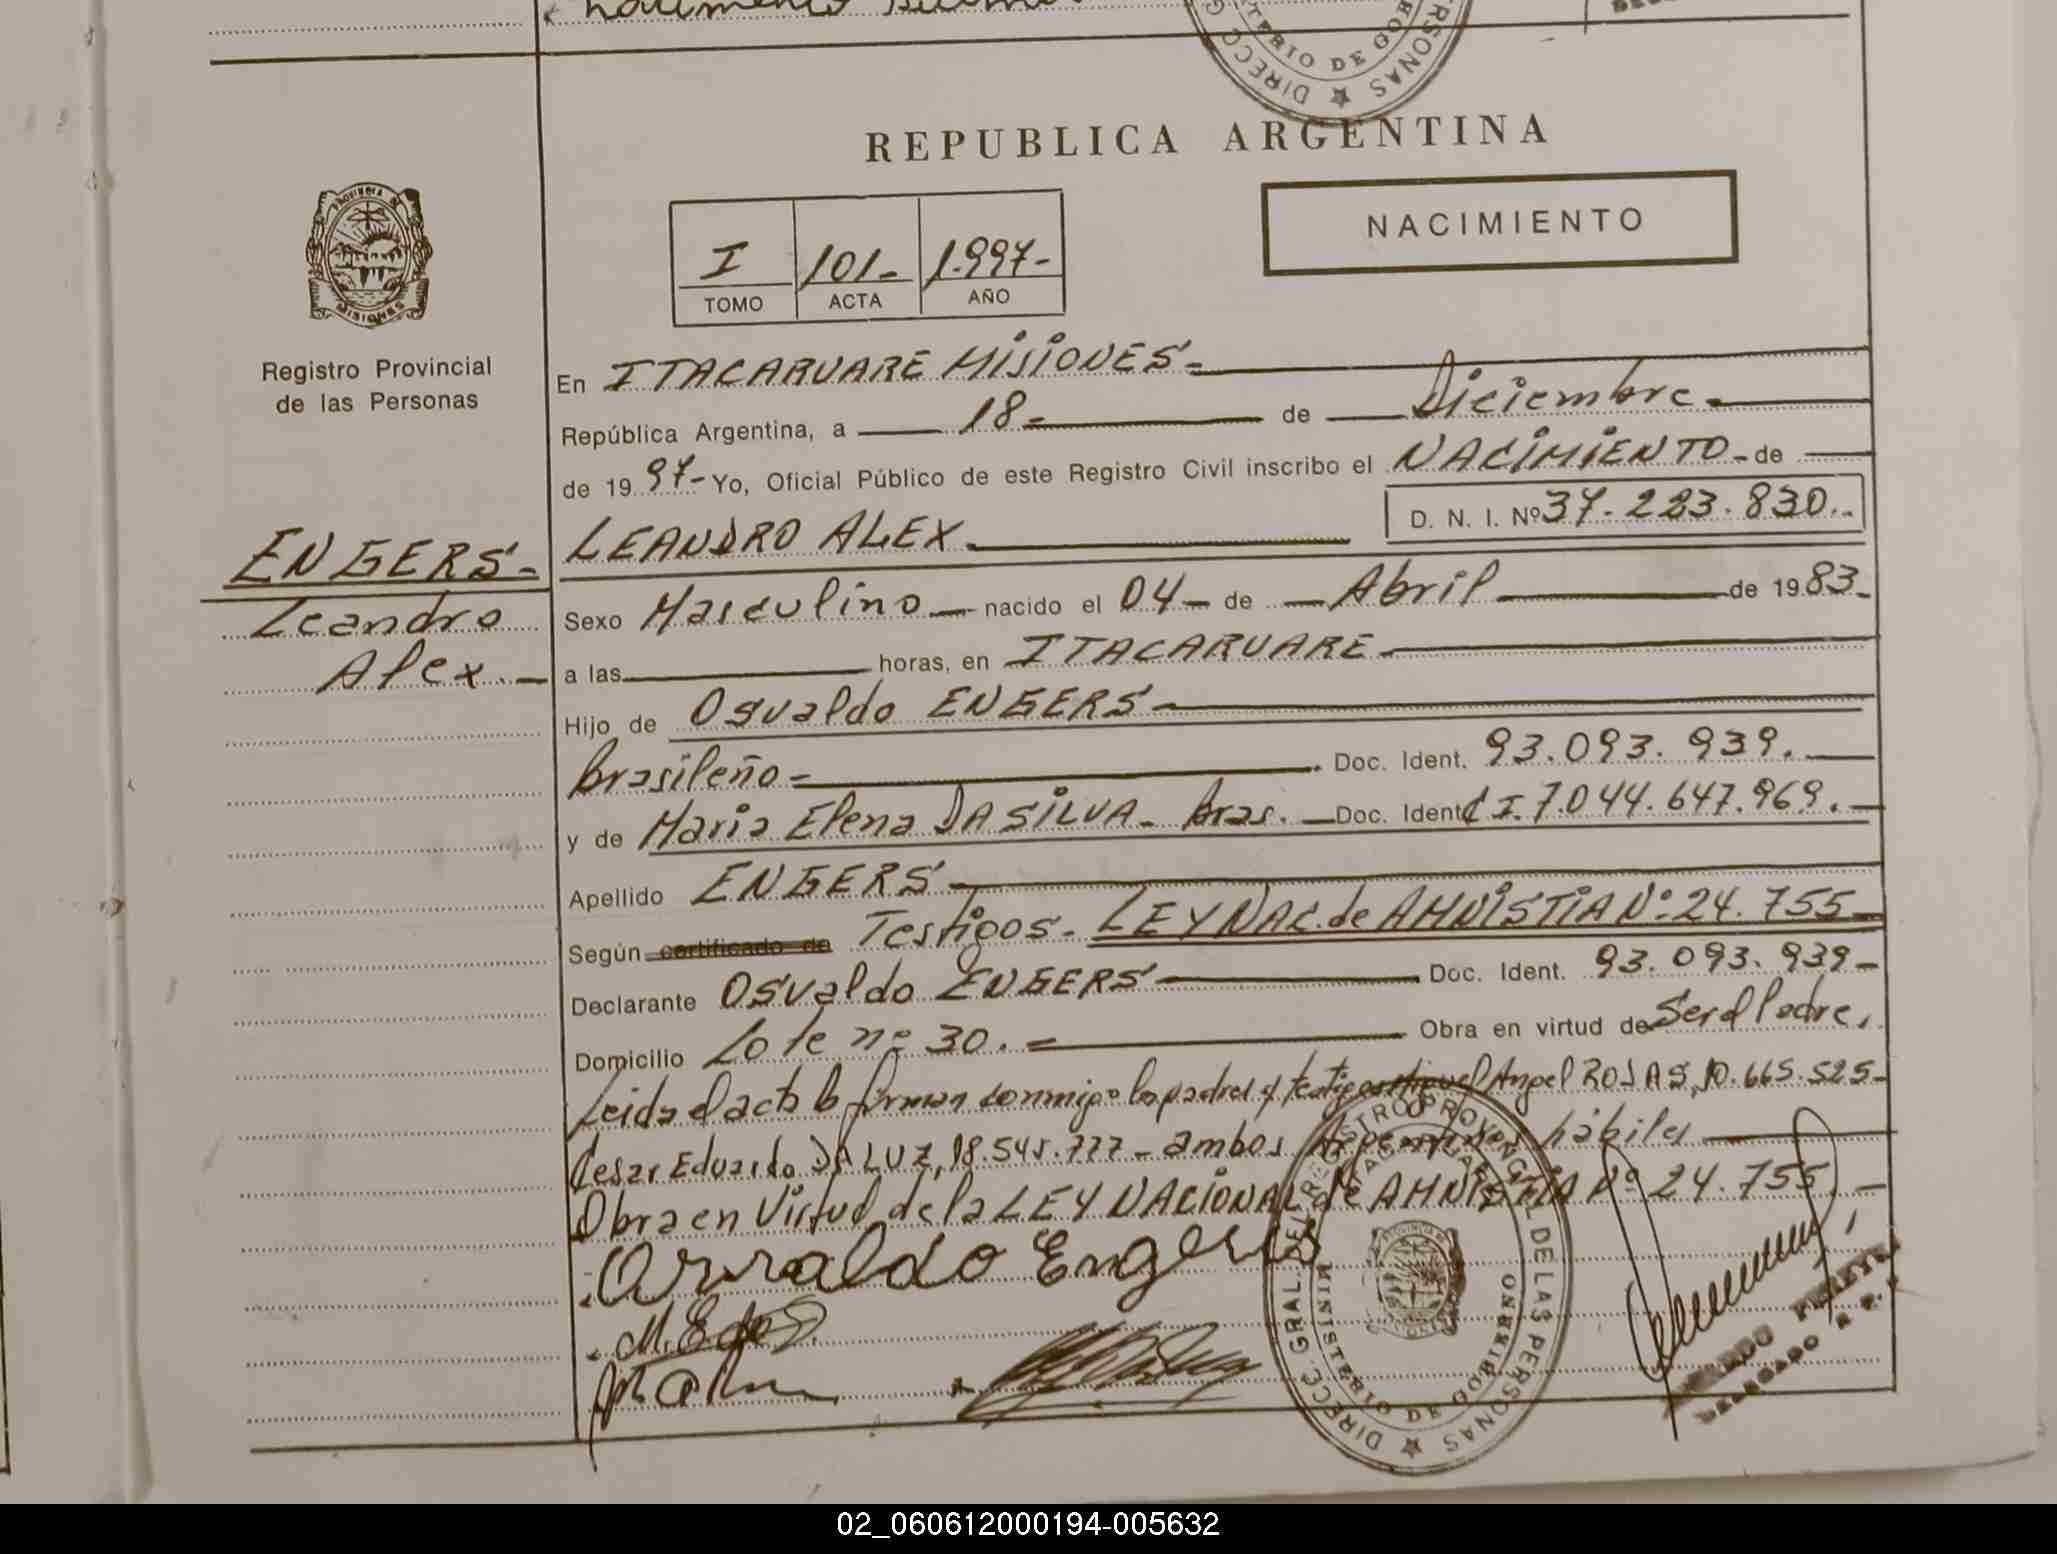 nacimiento
MINISTERIO DE GOBIERNO
DIRECC. G
PERSONAS
REPUBLICA ARGENTINA
PROVINCIA DE
MISIONES
Registro Provincial
de las Personas
I 101- 1.997-
TOMO ACTA AÑO
NACIMIENTO
En ITACARUARE MISIONES-
República Argentina, a 18- de Diciembre-
de 1997- Yo, Oficial Público de este Registro Civil inscribo el NACIMIENTO- de
D. N. I. Nº 37.223.830.-
ENGERS- LEANDRO ALEX-
Leandro
Alex.-
Sexo Masculino- nacido el 04- de - Abril de 1983-
a las horas, en ITACARUARE-
Hijo de Osvaldo ENGERS-
brasileño- Doc. Ident. 93.093.939.-
y de Maria Elena DA SILVA- bras. - Doc. Ident C I. 7.044.647.969.-
Apellido ENGERS-
Según certificado de Testigos- LEY NAC. de AMNISTIA Nº 24.755-
Declarante Osvaldo ENGERS- Doc. Ident. 93.093.939-
Domicilio Lote nº 30.- Obra en virtud de Ser el Padre.
Leida el acta la firman conmigo los padres y testigos Miguel Angel ROJAS, 10.665.525-
Cesar Eduardo DA LUZ, 18.545.777- ambos Argentinos hábiles
Obra en Virtud de la LEY NACIONAL de AMNISTIA Nº 24.755.-
Osvaldo Engers
DIRECC. GRAL. DEL REGISTRO PROVINCIAL DE LAS PERSONAS
MINISTERIO DE GOBIERNO
DELEGADO
02_060612000194-005632